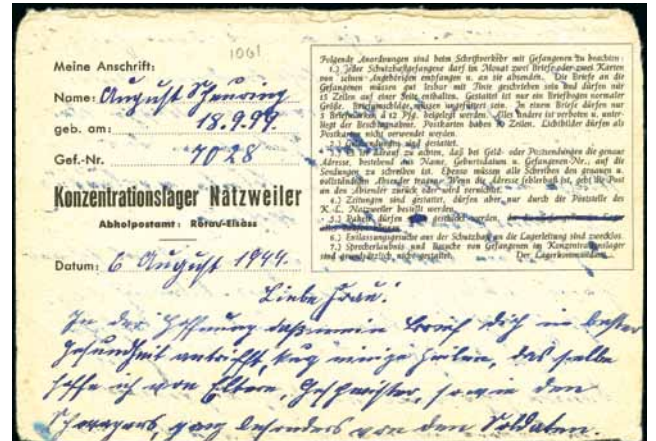 1001
Meine Anschrift:
Name: August Scheuring
geb. am: 18.9.99.
Gef.-Nr. 7028
Konzentrationslager Natzweiler
Abholpostamt: Rotau/Elsass
Datum: 6 August 1944.
Folgende Anordnungen sind beim Schriftverkehr mit Gefangenen zu beachten:
1.) Jeder Schutzhaftgefangene darf im Monat zwei Briefe oder zwei Karten
von seinen Angehörigen empfangen u. an sie absenden. Die Briefe an die
Gefangenen müssen gut lesbar mit Tinte geschrieben sein und dürfen nur
15 Zeilen auf einer Seite enthalten. Gestattet ist nur ein Briefbogen normaler
Größe. Briefumschläge müssen ungefüttert sein. In einem Briefe dürfen nur
5 Briefmarken à 12 Pfg. beigelegt werden. Alles andere ist verboten u. unter-
liegt der Beschlagnahme. Postkarten haben 10 Zeilen. Lichtbilder dürfen als
Postkarten nicht verwendet werden.
2.) Geldsendungen sind gestattet.
3.) Es ist darauf zu achten, daß bei Geld- oder Postsendungen die genaue
Adresse, bestehend aus Name, Geburtsdatum u. Gefangenen-Nr., auf die
Sendungen zu schreiben ist. Ebenso müssen alle Schreiben den genauen u.
vollständigen Absender tragen. Wenn die Adresse fehlerhaft ist, geht die Post
an den Absender zurück oder wird vernichtet.
4.) Zeitungen sind gestattet, dürfen aber nur durch die Poststelle des
K.-L. Natzweiler bestellt werden.
5.) Pakete dürfen geschickt werden,
6.) Entlassungsgesuche aus der Schutzhaft an die Lagerleitung sind zwecklos.
7.) Sprecherlaubnis und Besuche von Gefangenen im Konzentrationslager
sind grundsätzlich nicht gestattet. Der Lagerkommandant.
Liebe Frau!
In der Hoffnung daß mein Brief dich in bester
Gesundheit antrifft, einige Zeilen, das selbe
hoffe ich von Eltern, Geschwister, sowie den
Schwagers, ganz besonders von den Soldaten.